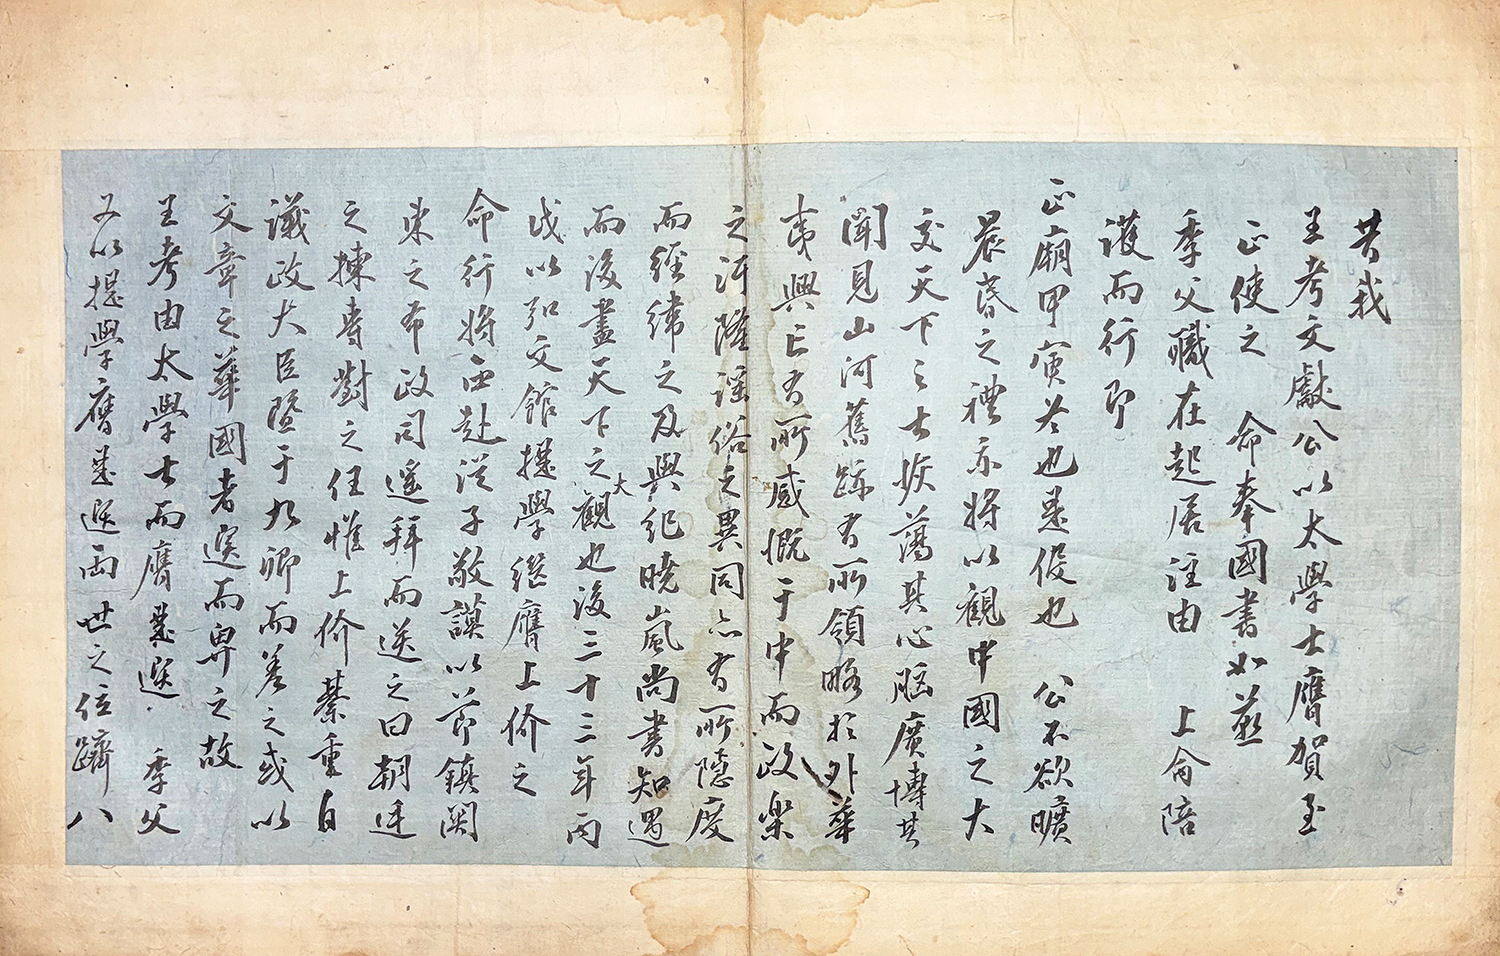 昔我
王考文獻公以太學士膺賀至
正使之 命奉國書如燕
季父職在起居注由 上侖陪
護而行即
正廟甲寅冬也是役也 公不欲曠
晨昏之禮亦將以觀中國之大
交天下之士族蕩其心胸廣博其
聞見山河舊跡有所領略於外華
夷興亡有所感慨于中而政樂
之汙隆謠俗之異同亦有所隱度
而經緯之及與紀曉嵐尚書知遇
而後盡天下之大觀也後三十三年丙
戌以弘文館提學繼膺上价之
命行將西赴從子敬謨以節鎮閫
東之布政司遙拜而送之曰朝廷
之揀專對之任惟上价綦重自
議政大臣曁于九卿而差之或以
文章之華國者選而畀之故
王考由太學士而膺是選 季父
又以提學膺是選兩世之位躋八